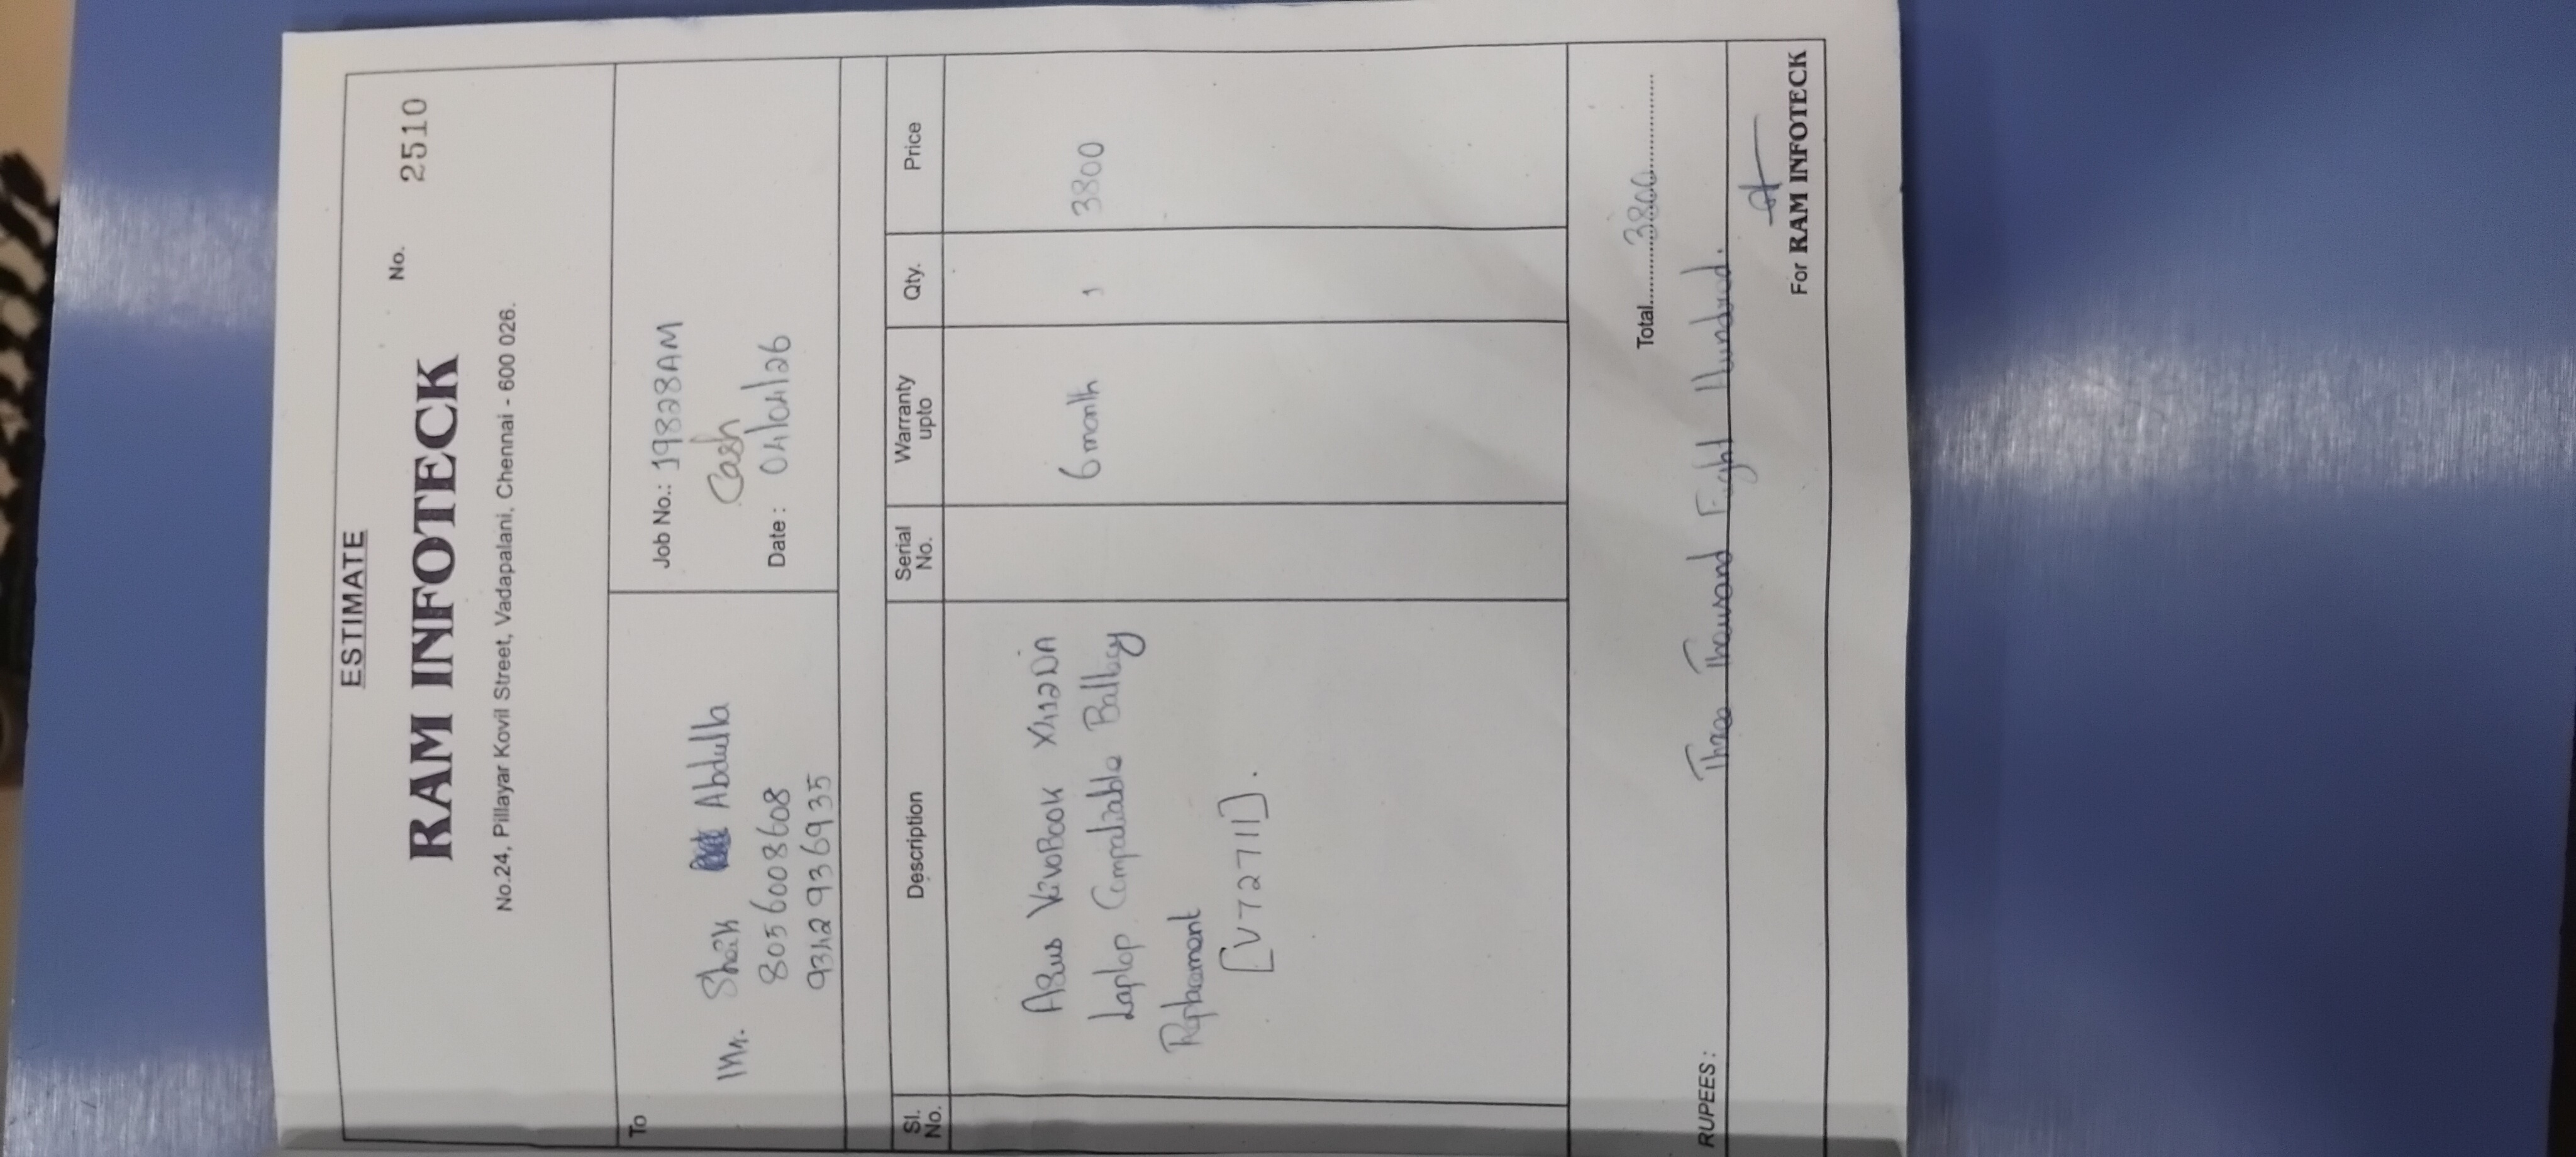 ESTIMATE
RAM INFOTECK
No. 2510
No.24, Pillayar Kovil Street, Vadapalani, Chennai - 600 026.
To
Mr. Shaik Abdulla
8056008608
9342936935
Job No.: 19828AM
Cash
Date : 04/04/26
Sl. No. Description Serial No. Warranty upto Qty. Price
Asus VivoBook X412DA 6 month 1 3800
Laptop Compatiable Battery
Replacement
[V72711].
Total 3800
RUPEES : Three Thousand Eight Hundred.
For RAM INFOTECK